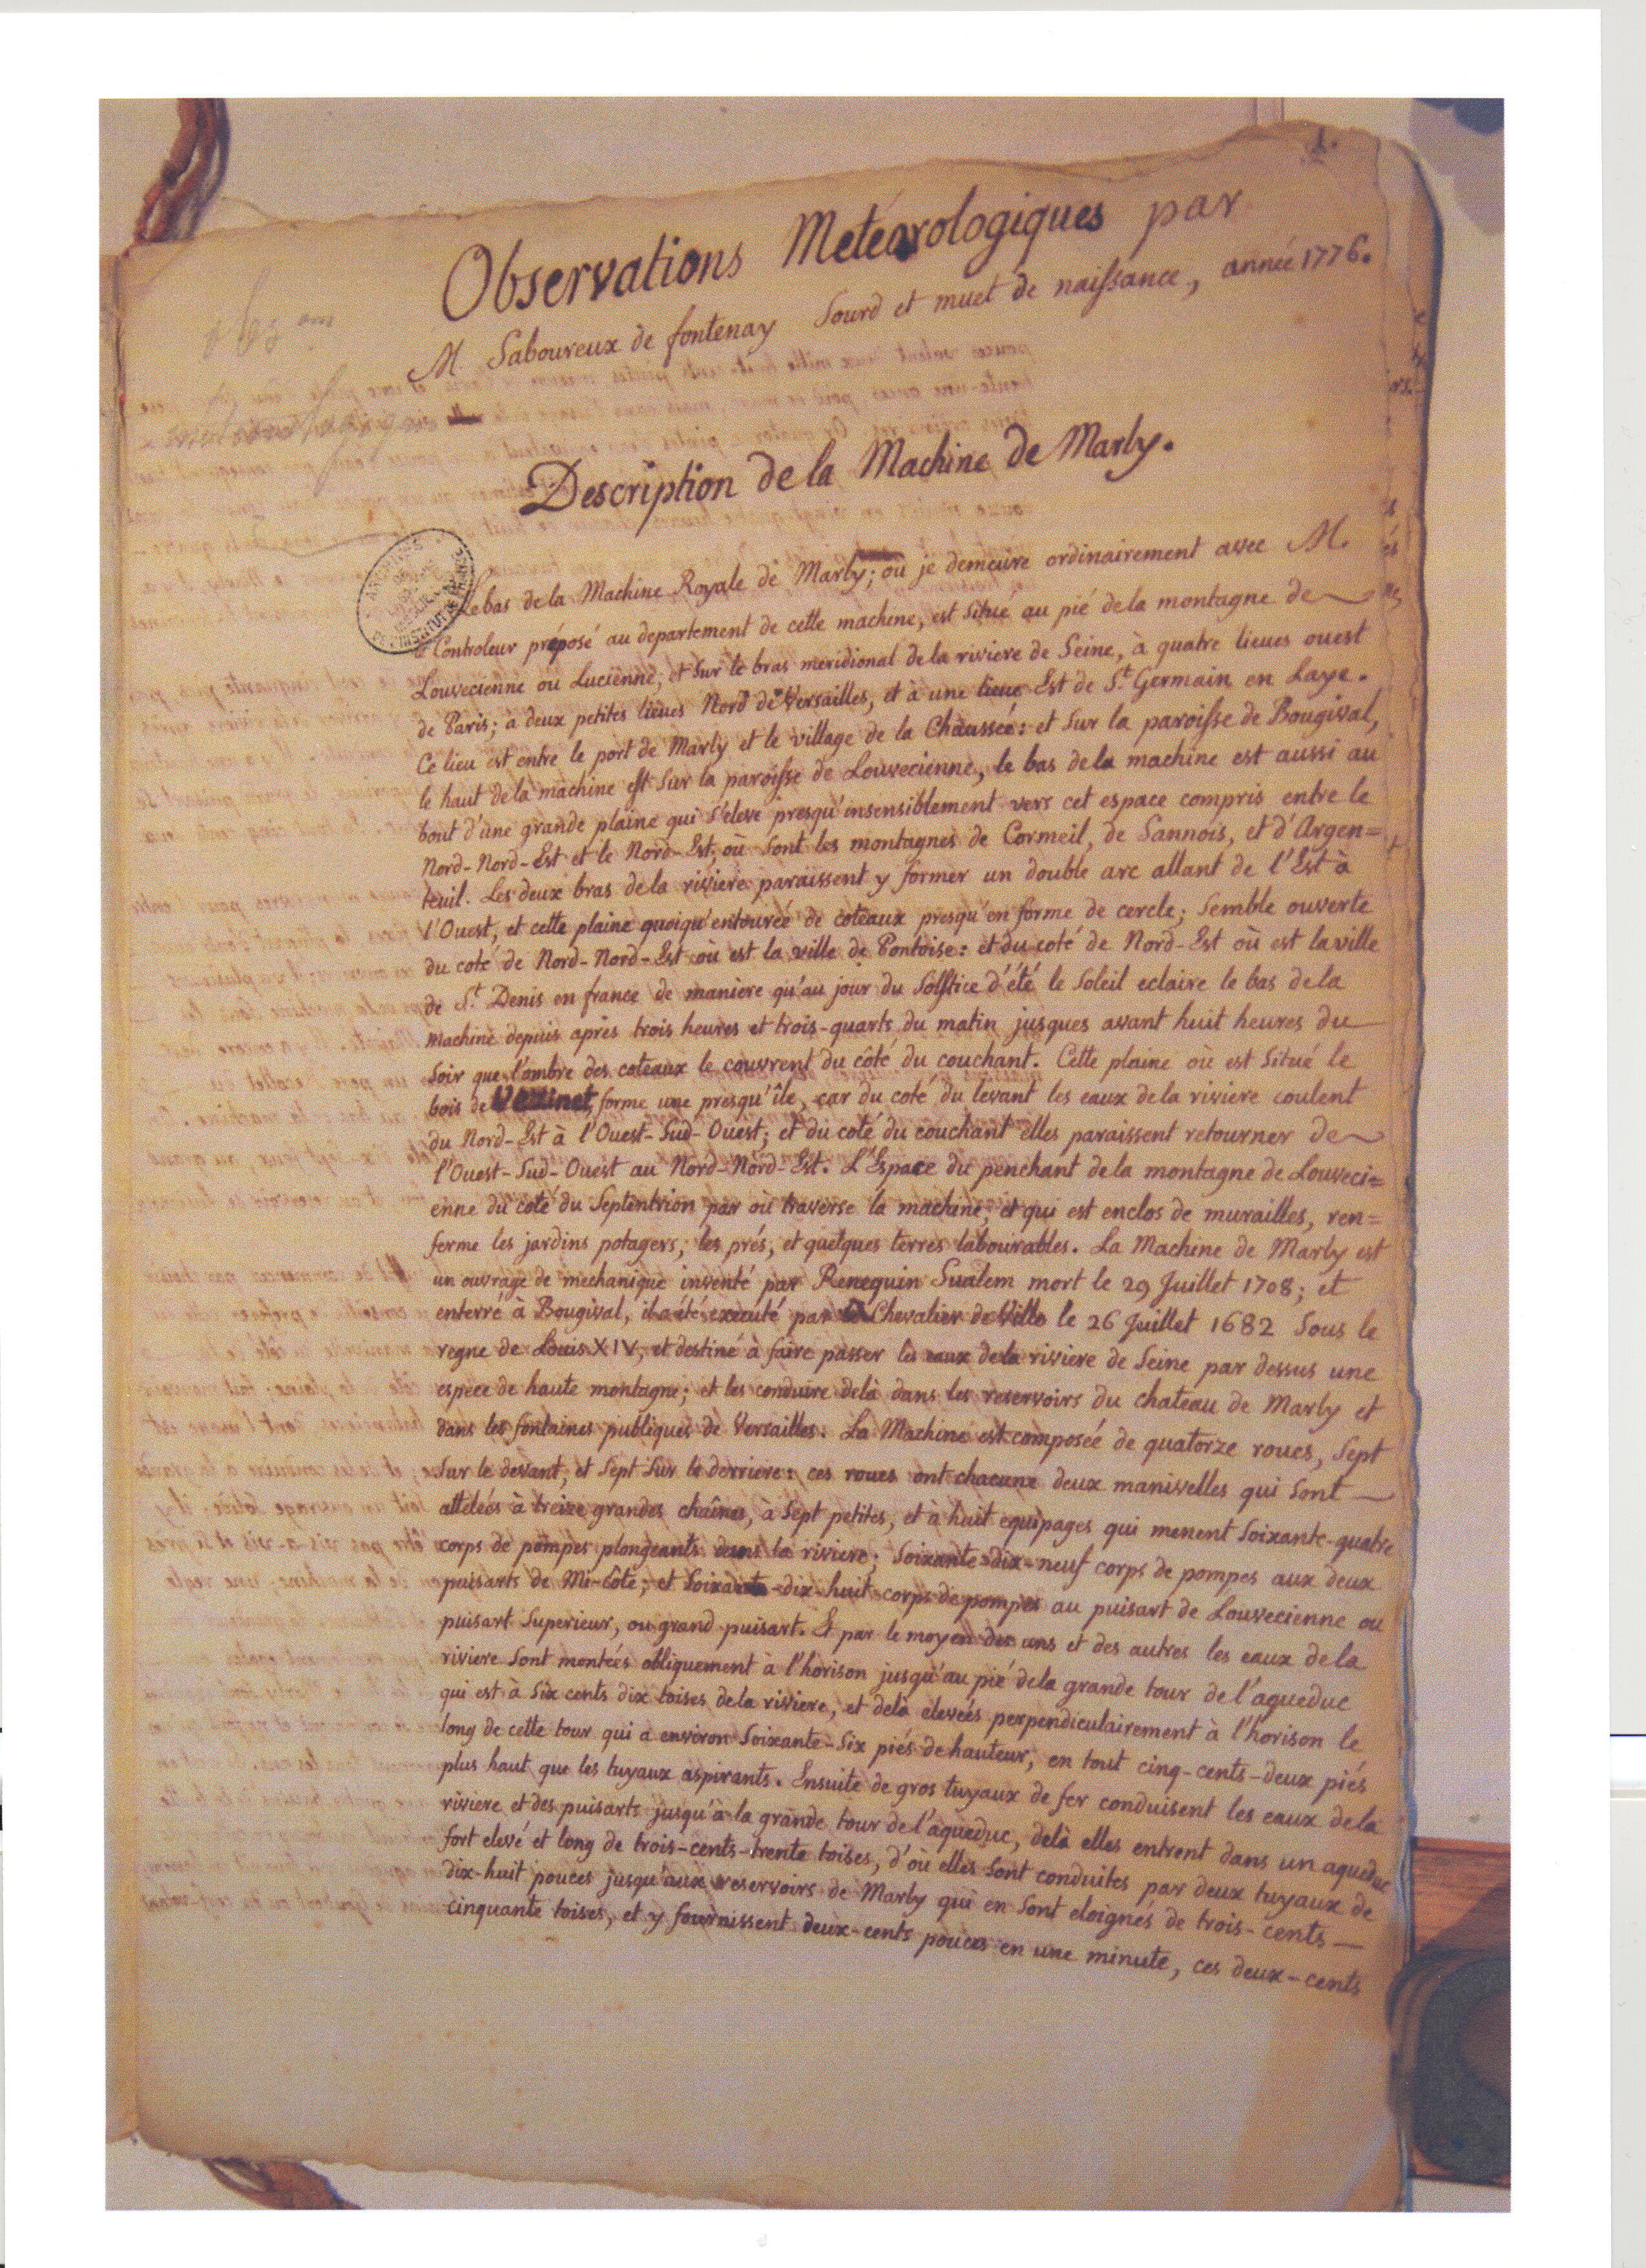 1.
Observations Meteorologiques par
M. Saboureux de fontenay Sourd et muet de naissance, année 1776.
Description de la Machine de Marly.
Le bas de la Machine Royale de Marly; où je demeure ordinairement avec M.
le Controleur préposé au departement de cette machine, est Situé au pié de la montagne de
Louvecienne ou Lucienne, et Sur le bras meridional de la riviere de Seine, à quatre lieues ouest
de Paris; à deux petites lieues Nord de Versailles, et à une lieue Est de St. Germain en Laye.
Ce lieu est entre le port de Marly et le village de la Chaussée: et Sur la paroisse de Bougival,
le haut de la machine est Sur la paroisse de Louvecienne, le bas de la machine est aussi au
bout d'une grande plaine qui S'éleve presqu'insensiblement vers cet espace compris entre le
Nord-Nord-Est et le Nord-Est, où Sont les montagnes de Cormeil, de Sannois, et d'Argen=
teuil. Les deux bras de la riviere paraissent y former un double arc allant de l'Est à
l'Ouest, et cette plaine quoiqu'entourée de coteaux presqu'en forme de cercle; Semble ouverte
du coté de Nord-Nord-Est où est la ville de Pontoise: et du coté de Nord-Est où est la ville
de St. Denis en france de maniere qu'au jour du Solstice d'été le Soleil eclaire le bas de la
machine depuis après trois heures et trois-quarts du matin jusques avant huit heures du
Soir que l'ombre des coteaux le couvrent du côté du couchant. Cette plaine où est Situé le
bois de Vezinet, forme une presqu'île, car du coté du levant les eaux de la riviere coulent
du Nord-Est à l'Ouest-Sud-Ouest; et du coté du couchant elles paraissent retourner de
l'Ouest-Sud-Ouest au Nord-Nord-Est. L'Espace du penchant de la montagne de Louveci=
enne du coté du Septentrion par où traverse la machine, et qui est enclos de murailles, ren=
ferme les jardins potagers, les prés, et quelques terres labourables. La Machine de Marly est
un ouvrage de mechanique inventé par Renequin Sualem mort le 29 Juillet 1708; et
enterré à Bougival, il a été executé par le Chevalier de Ville le 26 Juillet 1682 Sous le
regne de Louis XIV, et destiné à faire passer les eaux de la riviere de Seine par dessus une
espece de haute montagne; et les conduire delà dans les reservoirs du chateau de Marly et
dans les fontaines publiques de Versailles. La Machine est composée de quatorze roues, Sept
Sur le devant, et Sept Sur le derriere: ces roues ont chacune deux manivelles qui Sont
attelées à treize grandes chaînes, à Sept petites, et à huit equipages qui menent Soixante-quatre
corps de pompes plongeants dans la riviere; Soixante-dix-neuf corps de pompes aux deux
puisarts de Mi-côte; et Soixante-dix-huit corps de pompes au puisart de Louvecienne ou
puisart Superieur, ou grand puisart. Et par le moyen des uns et des autres les eaux de la
riviere Sont montées obliquement à l'horison jusqu'au pié de la grande tour de l'aqueduc
qui est à Six cents dix toises de la riviere, et delà elevées perpendiculairement à l'horison le
long de cette tour qui a environ Soixante-Six piés de hauteur, en tout cinq-cents-deux piés
plus haut que les tuyaux aspirants. Ensuite de gros tuyaux de fer conduisent les eaux de la
riviere et des puisarts jusqu'à la grande tour de l'aqueduc, delà elles entrent dans un aqueduc
fort elevé et long de trois-cents-trente toises, d'où elles Sont conduites par deux tuyaux de
dix-huit pouces jusqu'aux reservoirs de Marly qui en Sont eloignés de trois-cents
cinquante toises, et y fournissent deux-cents pouces en une minute, ces deux-cents